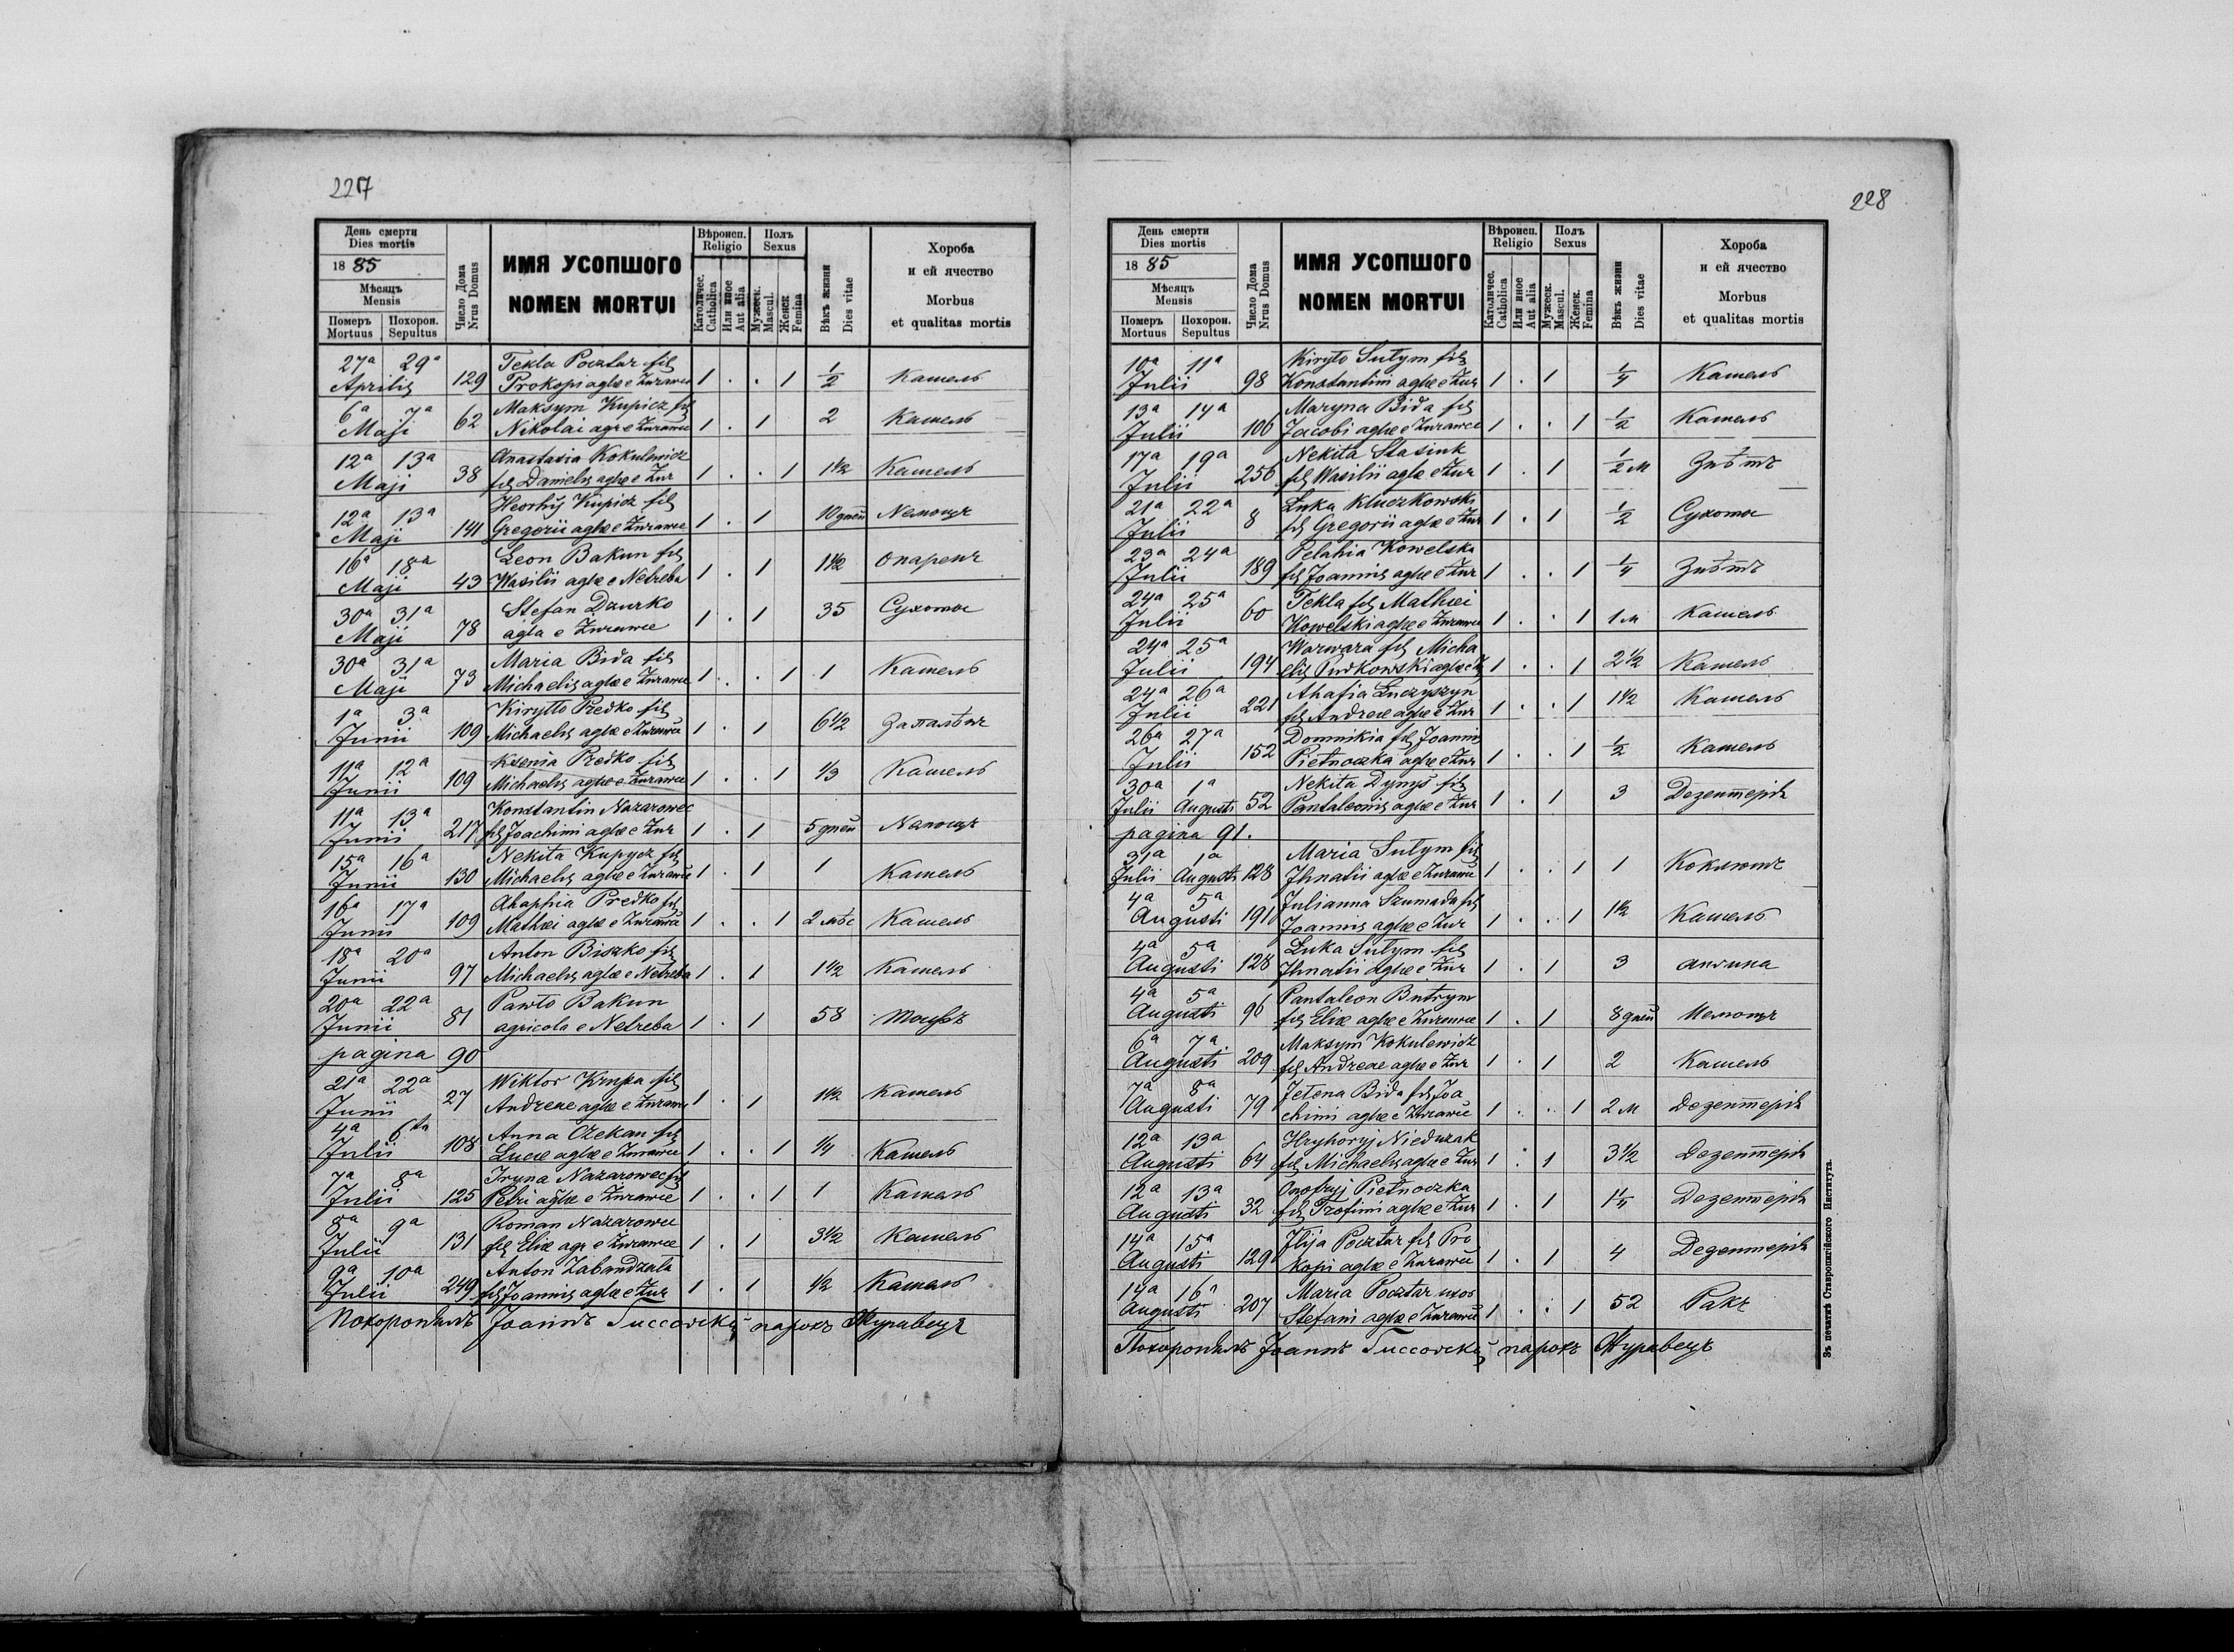 227
День смерти
Dies mortis
1885
Мѣсяцъ
Mensis
Померъ Похорон.
Mortuus Sepultus
Число Дома
Nrus Domus
ИМЯ УСОПШОГО
NOMEN MORTUI
Вѣроисп.
Religio
Католичес.
Catholica
Или иное
Aut alia
Полъ
Sexus
Мужеск.
Mascul.
Женск
Femina
Вѣкъ жизни
Dies vitae
Хороба
и ей ячество
Morbus
et qualitas mortis
27a 29a Tekla Pocztar fil
Aprilis 129 Prokopi aglae e Żurawce 1 . . 1 1/2 Кашель
6a 7a Maksym Kupicz fil
Maji 62 Nikolai agr e Żurawce 1 . 1 2 Кашель
12a 13a Anastasia Kokulewicz
Maji 38 fil Danielis aglae e Żur 1 . . 1 1 1/2 Кашель
12a 13a Heorhij Kupicz fil
Maji 141 Gregorii aglae e Żurawce 1 . 1 10 дней Немощъ
16a 18a Leon Bakun fil
Maji 43 Wasilii aglae e Netreba 1 . 1 1 1/2 опаренъ
30a 31a Stefan Dzurko
Maji 78 agla e Żurawce 1 . 1 35 Сухоты
30a 31a Maria Bida fil
Maji 73 Michaelis aglae e Żurawce 1 . . 1 1 Кашель
1a 3a Kiryłło Predko fil
Junii 109 Michaelis aglae e Żurawce 1 . 1 6 1/2
11a 12a Ksenia Predko fil
Junii 109 Michaelis aglae e Żurawce 1 . . 1 1/3 Кашель
11a 13a Konstantin Nazarowec
Junii 217 fil Joachimi aglae e Żur 1 . 1 5 дней Немощъ
15a 16a Nekita Kupycz fil
Junii 130 Michaelis aglae e Żurawce 1 . 1 1 Кашель
16a 17a Ahaphia Predko fil
Junii 109 Mathei aglae e Żurawce 1 . . 1 2 мѣс Кашель
18a 20a Anton Biszko fil
Junii 97 Michaelis aglae e Netreba 1 . 1 1 1/2 Кашель
20a 22a Pawło Bakun
Junii 81 agricola e Netreba 1 . 1 58
pagina 90
21a 22a Wiktor Krupa fil
Junii 27 Andreae aglae e Żurawce 1 . 1 1 1/2 Кашель
4a 6ta Anna Ożekan fil
Julii 108 Lucae aglae e Żurawce 1 . . 1 1/4 Кашель
7a 8a Iryna Nazarowec fil
Julii 125 Petri aglae e Żurawce 1 . . 1 1 Кашель
8a 9a Roman Nazarowec
Julii 131 fil Eliae agr e Żurawce 1 . 1 3 1/2 Кашель
9a 10a Anton Zabandżała
Julii 249 fil Joannis aglae e Żur 1 . 1 1/2 Кашель
Похоронилъ Joannъ парохъ Журавецъ
228
День смерти
Dies mortis
1885
Мѣсяцъ
Mensis
Померъ Похорон.
Mortuus Sepultus
Число Дома
Nrus Domus
ИМЯ УСОПШОГО
NOMEN MORTUI
Вѣроисп.
Religio
Католичес.
Catholica
Или иное
Aut alia
Полъ
Sexus
Мужеск.
Mascul.
Женск.
Femina
Вѣкъ жизни
Dies vitae
Хороба
и ей ячество
Morbus
et qualitas mortis
10a 11a Kiryło Sutym fil
Julii 98 Konstantini aglae e Żur 1 . 1 1/4 Кашель
13a 14a Maryna Bida fil
Julii 106 Jacobi aglae e Żurawce 1 . . 1 1/2 Кашель
17a 19a Nekita Stasiuk
Julii 256 fil Wasilii aglae e Żur 1 . 1 1/2 м Гнѣтъ
21a 22a Łuka Kluczkowski
Julii 8 fil Gregorii aglae e Żur 1 . 1 1/2 Сухоты
23a 24a Pelahia Kowelska
Julii 189 fil Joannis aglae e Żur 1 . . 1 1/4 Гнѣтъ
24a 25a Tekla fil Mathei
Julii 60 Kowelski aglae e Żurawce 1 . . 1 1 м Кашель
24a 25a Warwara fil Micha
Julii 194 elis Pudkowski aglae e Ż 1 . . 1 2 1/2 Кашель
24a 26a Ahafia Łuczyszyn
Julii 221 fil Andreae aglae e Żur 1 . . 1 1 1/2 Кашель
26a 27a Domnikia fil Joannis
Julii 152 Pietnoczka aglae e Żur 1 . . 1 1/2 Кашель
30a 1a Nekita Dynys fil
Julii Augusti 52 Pantaleonis aglae e Żur 1 . 1 3 Дезентерія
pagina 91.
31a 1a Maria Sutym fil
Julii Augusti 128 Ihnatii aglae e Żurawce 1 . . 1 1 Коклюшъ
4a 5a Julianna Szumada fil
Augusti 191 Joannis aglae e Żur 1 . . 1 1 1/2 Кашель
4a 5a Łuka Sutym fil
Augusti 128 Ihnatii aglae e Żur 1 . 1 3 ангина
4a 5a Pantaleon Butrym
Augusti 96 fil Eliae aglae e Żurawce 1 . 1 8 дней Немощъ
6a 7a Maksym Kokulewicz
Augusti 209 fil Andreae aglae e Żur 1 . 1 2 Кашель
7a 8a Jełena Bida fil Joa
Augusti 79 chimi aglae e Żurawce 1 . . 1 2 м Дезентерія
12a 13a Hryhoryj Niedużak
Augusti 64 fil Michaelis aglae e Żur 1 . 1 3 1/2 Дезентерія
12a 13a Onofryj Pietnoczka
Augusti 32 fil Trofimi aglae e Żur 1 . 1 1 1/4 Дезентерія
14a 15a Ilija Pocztar fil Pro
Augusti 129 kopi aglae e Żurawce 1 . 1 4 Дезентерія
14a 16a Maria Pocztar uxor
Augusti 207 Stefani aglae e Żurawce 1 . . 1 52 Ракъ
Похоронилъ Joannъ парохъ Журавецъ
Зъ печатнѣ Ставропигійского Института.